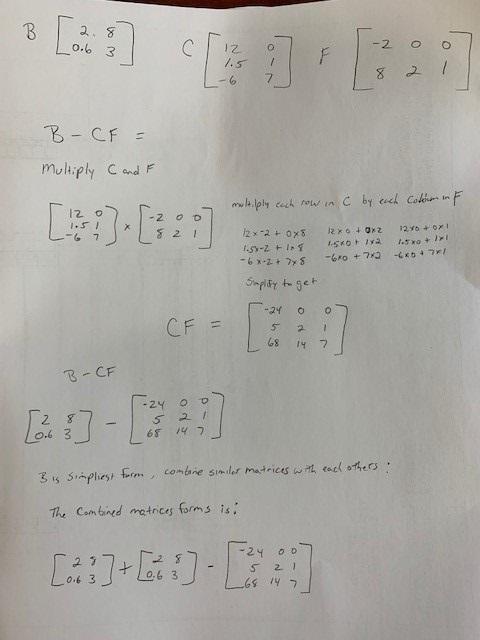 B [2. 8
0.6 3] C [12 0
1.5 1
-6 7] F [-2 0 0
8 2 1]
B - CF =
Multiply C and F
[12 0
1.5 1
-6 7] x [-2 0 0
8 2 1]
multiply each row in C by each Column in F
12x-2 + 0x8 12x0 + 0x2 12x0 + 0x1
1.5x-2 + 1x8 1.5x0 + 1x2 1.5x0 + 1x1
-6x-2 + 7x8 -6x0 + 7x2 -6x0 + 7x1
Simplify to get
CF = [-24 0 0
5 2 1
68 14 7]
B - CF
[2 8
0.6 3] - [-24 0 0
5 2 1
68 14 7]
B is Simpliest form, combine similar matrices with each others :
The Combined matrices forms is:
[2 8
0.6 3] + [2 8
0.6 3] - [-24 0 0
5 2 1
68 14 7]